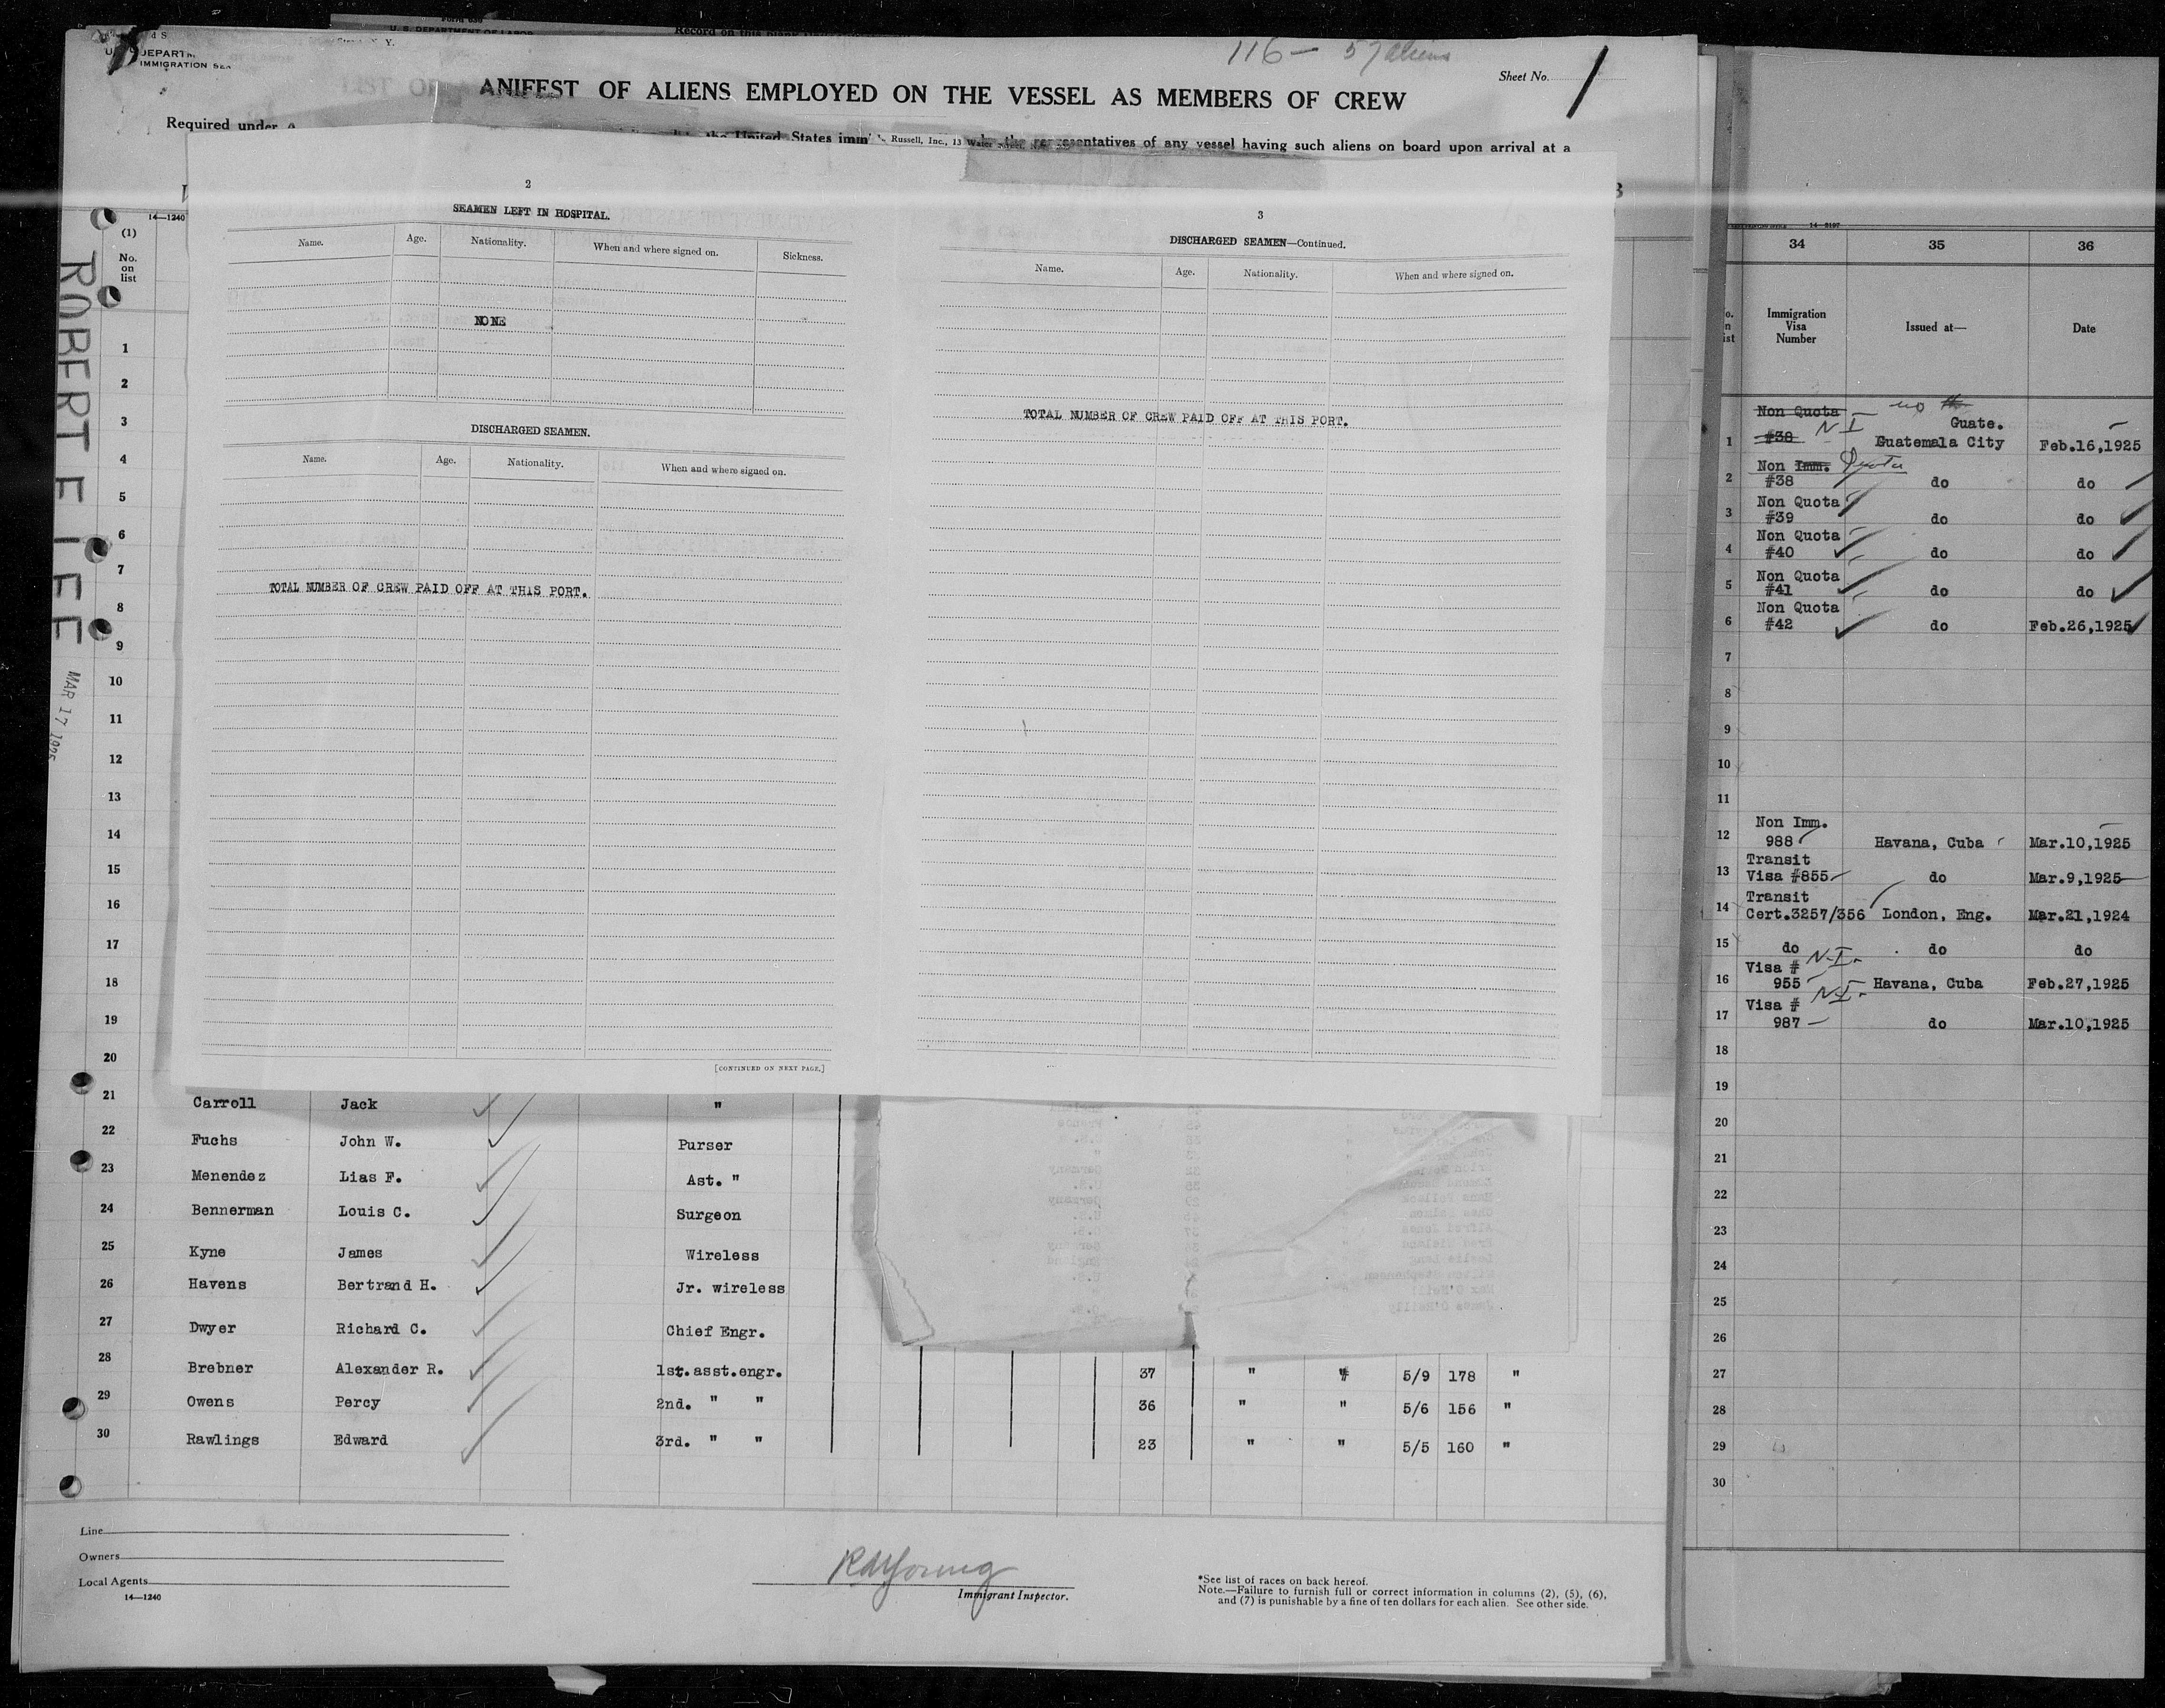 Form 630
U. S. DEPARTMENT OF LABOR
Record on this blank
IMMIGRATION
116 — 57 aliens
Sheet No. 1
LIST OF
ANIFEST OF ALIENS EMPLOYED ON THE VESSEL AS MEMBERS OF CREW
Required under
the United States imm
Russell, Inc., 13 Water
representatives of any vessel having such aliens on board upon arrival at a
14—1240
(1)
No.
on
list
ROBERT E LEE
MAR 17 1925
2
SEAMEN LEFT IN HOSPITAL.
Name. Age. Nationality. When and where signed on. Sickness.
NONE
DISCHARGED SEAMEN.
Name. Age. Nationality. When and where signed on.
TOTAL NUMBER OF CREW PAID OFF AT THIS PORT.
[CONTINUED ON NEXT PAGE.]
3
DISCHARGED SEAMEN—Continued.
Name. Age. Nationality. When and where signed on.
TOTAL NUMBER OF CREW PAID OFF AT THIS PORT.
1
2
3
4
5
6
7
8
9
10
11
12
13
14
15
16
17
18
19
20
21 Carroll Jack "
22 Fuchs John W. Purser
23 Menendez Lias F. Ast. "
24 Bennerman Louis C. Surgeon
25 Kyne James Wireless
26 Havens Bertrand H. Jr. wireless
27 Dwyer Richard C. Chief Engr.
28 Brebner Alexander R. 1st.asst.engr. 37 " " 5/9 178 "
29 Owens Percy 2nd. " " 36 " " 5/6 156 "
30 Rawlings Edward 3rd. " " 23 " " 5/5 160 "
Line
Owners
Local Agents
14—1240
Immigrant Inspector.
*See list of races on back hereof.
Note.—Failure to furnish full or correct information in columns (2), (5), (6),
and (7) is punishable by a fine of ten dollars for each alien. See other side.
14—3197
34 35 36
Immigration
Visa
Number
Issued at—
Date
Non Quota no
N I Guate.
1 #38 Guatemala City Feb.16,1925
Non Imm. Quota
2 #38 do do
Non Quota
3 #39 do do
Non Quota
4 #40 do do
Non Quota
5 #41 do do
Non Quota
6 #42 do Feb.26,1925
7
8
9
10
11
Non Imm.
12 988 Havana, Cuba Mar.10,1925
Transit
13 Visa #855 do Mar.9,1925
Transit
14 Cert.3257/356 London, Eng. Mar.21,1924
15 do do do
Visa # N.I.
16 955 Havana, Cuba Feb.27,1925
Visa # N.I.
17 987 do Mar.10,1925
18
19
20
21
22
23
24
25
26
27
28
29
30